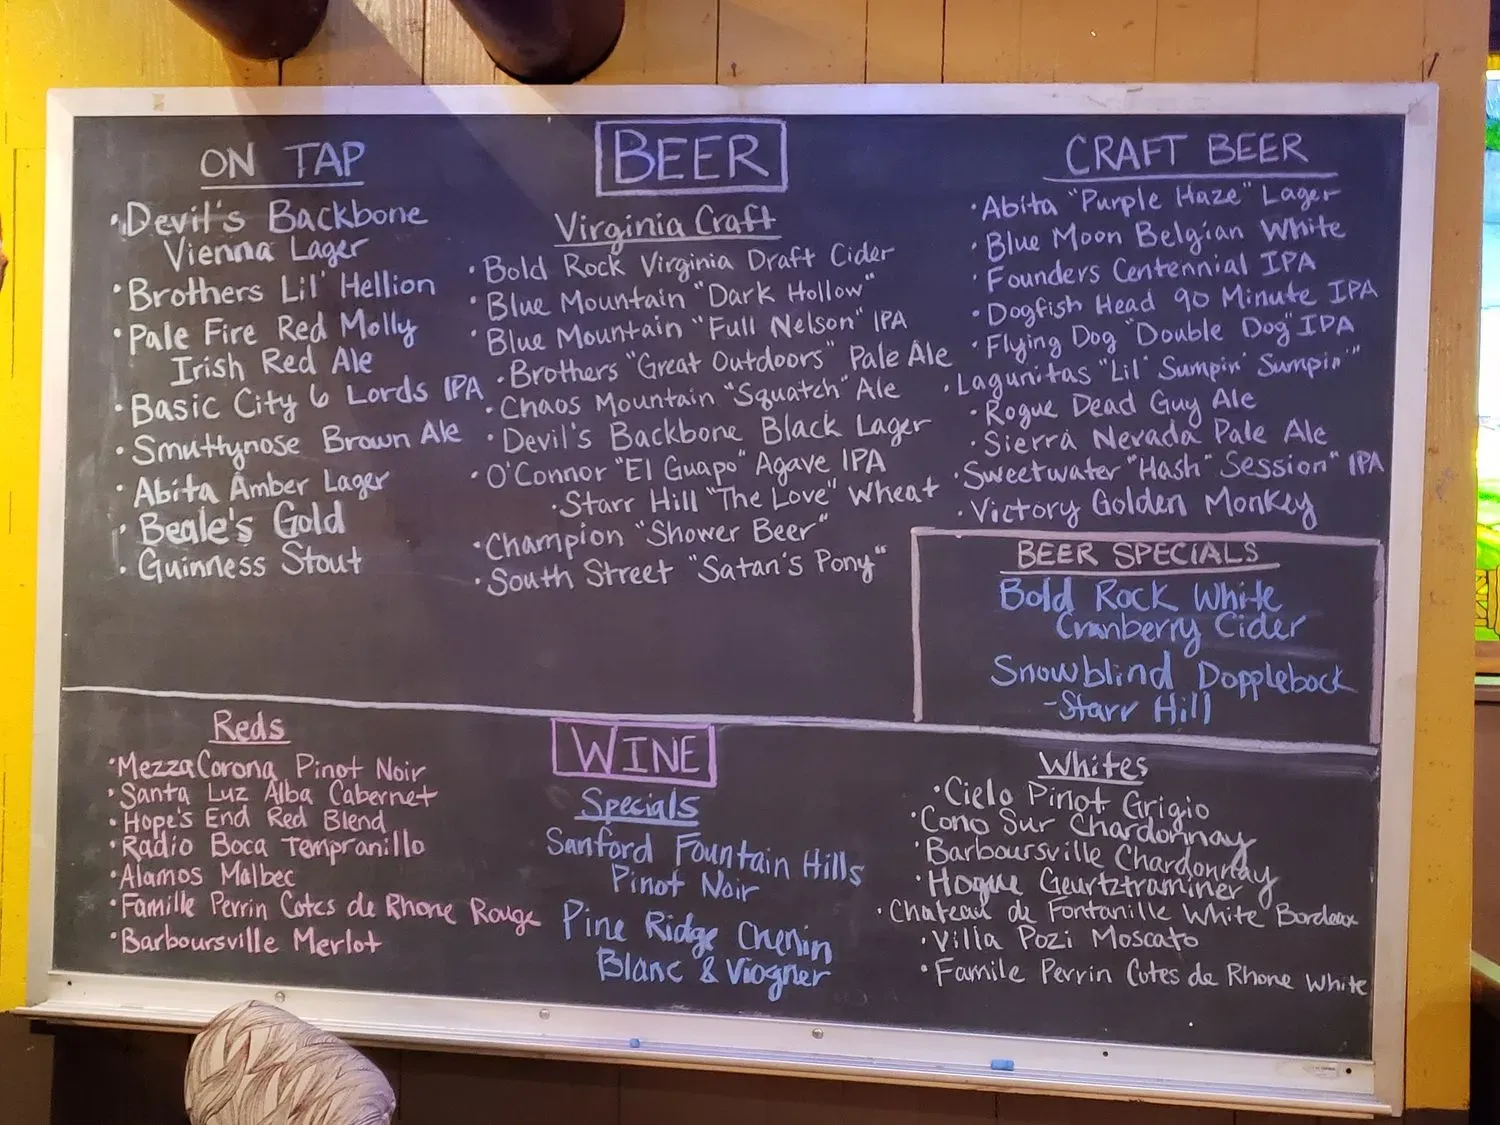 ON TAP
• Devil's Backbone
Vienna Lager
• Brothers Lil' Hellion
• Pale Fire Red Molly
Irish Red Ale
• Basic City 6 Lords IPA
• Smuttynose Brown Ale
• Abita Amber Lager
• Beale's Gold
• Guinness Stout
BEER
Virginia Craft
• Bold Rock Virginia Draft Cider
• Blue Mountain "Dark Hollow"
• Blue Mountain "Full Nelson" IPA
• Brothers "Great Outdoors" Pale Ale
• Chaos Mountain "Squatch" Ale
• Devil's Backbone Black Lager
• O'Connor "El Guapo" Agave IPA
• Starr Hill "The Love" Wheat
• Champion "Shower Beer"
• South Street "Satan's Pony"
CRAFT BEER
• Abita "Purple Haze" Lager
• Blue Moon Belgian White
• Founders Centennial IPA
• Dogfish Head 90 Minute IPA
• Flying Dog "Double Dog" IPA
• Lagunitas "Lil' Sumpin' Sumpin'"
• Rogue Dead Guy Ale
• Sierra Nevada Pale Ale
• Sweetwater "Hash" Session" IPA
• Victory Golden Monkey
BEER SPECIALS
Bold Rock White
Cranberry Cider
Snowblind Dopplebock
- Starr Hill
Reds
• MezzaCorona Pinot Noir
• Santa Luz Alba Cabernet
• Hope's End Red Blend
• Radio Boca Tempranillo
• Alamos Malbec
• Famille Perrin Cotes de Rhone Rouge
• Barboursville Merlot
WINE
Specials
Sanford Fountain Hills
Pinot Noir
Pine Ridge Chenin
Blanc & Viogner
Whites
• Cielo Pinot Grigio
• Cono Sur Chardonnay
• Barboursville Chardonnay
• Hogue Geurtztraminer
• Chateau de Fontanille White Bordeaux
• Villa Pozi Moscato
• Famile Perrin Cotes de Rhone White